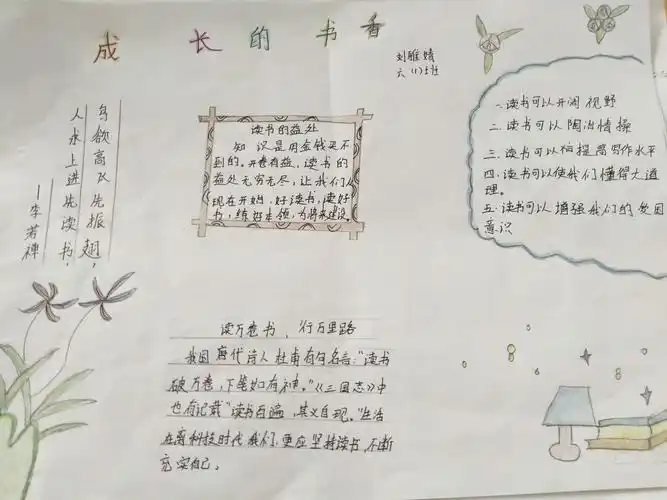 成长的书香
刘雅婧
六(1)班
鸟欲高飞先振翅，
人求上进先读书，
—李若禅
读书的益处
知识是用金钱买不
到的。开卷有益，读书的
益处无穷无尽，让我们从
现在开始，好读书，读好
书，练好本领，为将来建设。
一、读书可以开阔视野
二、读书可以陶冶情操
三、读书可以提高写作水平
四、读书可以使我们懂得大道
理。
五、读书可以增强我们的爱国
意识
读万卷书，行万里路
我国唐代诗人杜甫有句名言：“读书
破万卷，下笔如有神。”《三国志》中
也有记载“读书百遍，其义自现。”生活
在高科技时代我们，更应坚持读书，不断
充实自己。